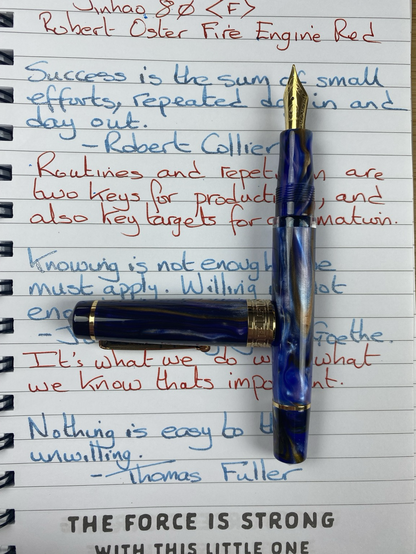 Jinhao 80 <F>
Robert Oster Fire Engine Red
Success is the sum of small
efforts, repeated day in and
day out.
- Robert Collier
Routines and are
two keys for and
also key targets for
Knowing is not enough
must apply. Willing not
Goethe.
It's what we do what
we know thats
Nothing is easy to
unwilling.
- Thomas Fuller
THE FORCE IS STRONG
WITH THIS LITTLE ONE